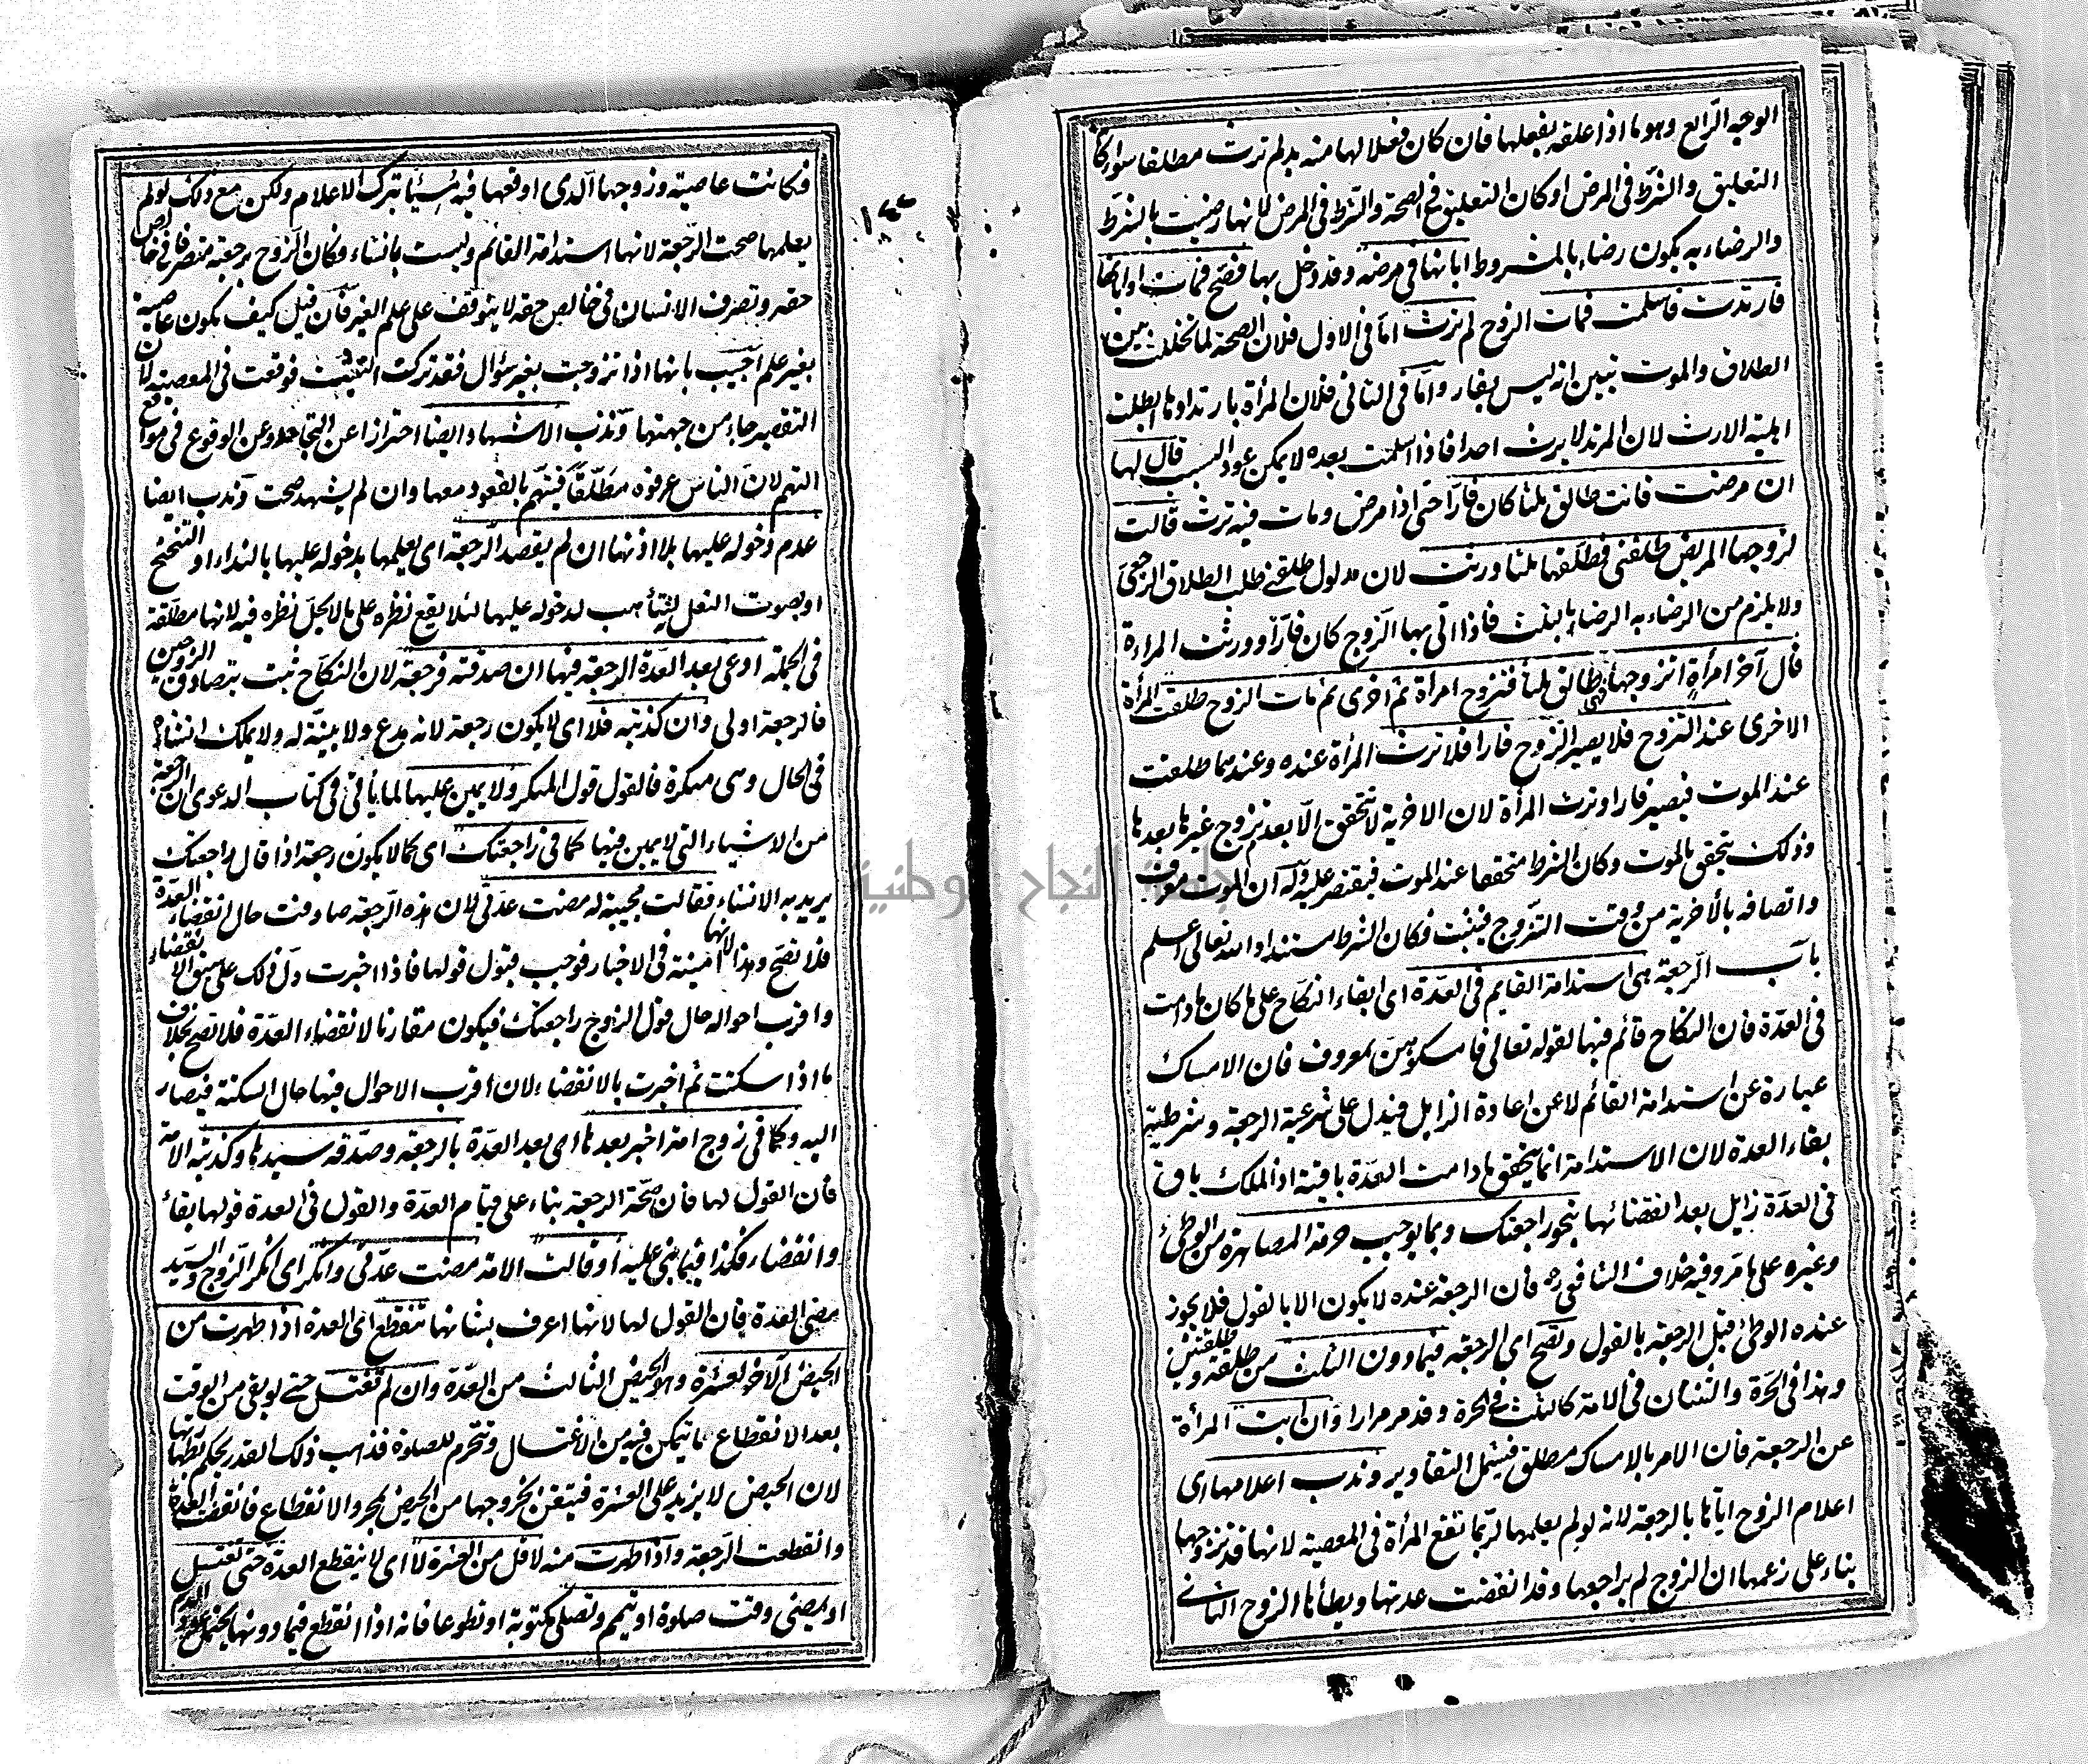 الوجه الرّابع وهو ما اذا علقه بفعلها فان كان فعلا لها منه بد لم ترث مطلقا سواء كا
التعليق والشّرط فى المرض او كان التعليق فى الصحة والشّرط فى المرض لانها رضيت بالشرط
والرضاء به يكون رضاء بالمشروط ابانها فى مرضه وقد دخل بها فصحّ فمات او ابانها
فارتدت فاسلمت فمات الزوج لم ترث امّا فى الاول فلان الصحة لما تخللت بين
الطلاق والموت تبين انه ليس بفار وامّا فى الثانى فلان المرأة بارتدادها ابطلت
اهلية الارث لان المرتد لا يرث احدا فاذا اسلمت بعده لا يمكن عود السبب قال لها
ان مرضت فانت طالق ثلثا كان فارّا حتى اذا مرض ومات فيه ترث قالت
لزوجها المريض طلقنى فطلّقها ثلثا ورثت لان مدلول طلقنى طلب الطلاق الرجعى
ولا يلزم من الرضاء به الرضاء بالثلث فاذا اتى بها الزوج كان فارّا وورثت المرادة
قال آخر امرأة اتزوجها فهى طالق ثلثا فتزوج امرأة ثم اخرى ثم مات الزوج طلقت المرأة
الاخرى عند التزوج فلا يصير الزوج فارا فلا ترث المرأة عنده وعندهما طلقت
عند الموت فيصير فارا وترث المرأة لان الاخرية لا تتحقق الّا بعد تزوج غيرها بعدها
وذلك يتحقق بالموت وكان الشرط متحققا عند الموت فيقتصر عليه وله ان الموت معرف
واتصافه بالأخرية من وقت التزوج فيثبت فكان الشرط مستندا والله تعالى اعلم
باب الرجعة هى استدامة القايم فى العدة اى ابقاء النكاح على ما كان ما دامت
فى العدّة فان النكاح قائم فيها لقوله تعالى فامسكوهنّ بمعروف فان الامساك
عبارة عن استدامة القائم لا عن اعادة الزايل فيدل على شرعية الرجعة وشرطية
بقاء العدة لان الاستدامة انما يتحقق ما دامت العدّة باقية اذ الملك باق
فى العدّة زايل بعد انقضائها بنحو راجعتك وبما يوجب حرمة المصاهرة من الوطئ
وغيره على ما مر وفيه خلاف الشافعى رح فان الرجعة عنده لا يكون الا بالقول فلا يجوز
عنده الوطئ قبل الرجعة بالقول وتصح اى الرجعة فيما دون الثلث من طلقة و طلقتين
وهذا فى الحرّة والثنتان فى الامة كالثلث فى الحرة وقد مر مرارا وان ابت المرأة
عن الرجعة فان الامر بالامساك مطلق فيشمل التقادير وندب اعلامها اى
اعلام الزوج اياها بالرجعة لانه لو لم يعلمها لربّما تقع المرأة فى المعصية لانها قد تزوجها
بناء على زعمها ان الزوج لم يراجعها وقد انقضت عدتها ويطأها الزوج الثانى
١٤٤
فكانت عاصية وزوجها الّذى اوقعها فيه مسيئا بترك الاعلام ولكن مع ذلك لو لم
يعلمها صحت الرّجعة لانها استدامة القائم وليست بانشاء فكان الزوج برجعته متصرفا فى خالص
حقه وتصرف الانسان فى خالص حقه لا يتوقف على علم الغير فان قيل كيف يكون عاصية
بغير علم اجيب بانها اذا تزوجت بغير سؤال فقد تركت التثبت فوقعت فى المعصية لان
التقصير جاء من جهتها وندب الاشهاد ايضا احترازا عن التجاحد وعن الوقوع فى مواقع
التهم لان الناس عرفوه مطلّقا فيتهم بالقعود معها وان لم يشهد صحت وندب ايضا
عدم دخوله عليها بلا اذنها ان لم يقصد الرجعة اى يعلمها بدخوله عليها بالنداء او التنحنح
او بصوت النعل ليتأهب لدخوله عليها لئلا يقع نظره على ما لا يحل نظره فيه لانها مطلّقة
فى الجملة ادعى بعد العدّة الرجعة فيها ان صدقته فرجعة لان النكاح ثبت بتصادق الزوجين
فالرجعة اولى وان كذبته فلا اى لا يكون رجعة لانه مدع ولا بيّنة له ولا يملك انشاءه
فى الحال وهى منكرة فالقول قول المنكر ولا يمين عليها لما يأتى فى كتاب الدعوى ان الرجعة
من الاشياء التى لا يمين فيها كما فى راجعتك اى كما لا يكون رجعة اذا قال راجعتك
يريد به الانشاء فقالت مجيبة له مضت عدتى لان هذه الرّجعة صادفت حال انقضاء العدّة
فلا تصح وهذا لانها امينة فى الاخبار فوجب قبول قولها فاذا اخبرت دل ذلك على سبق الانقضاء
واقرب احواله حال قول الزوج راجعتك فيكون مقارنا لانقضاء العدّة فلا تصح بخلاف
ما اذا سكتت ثم اخبرت بالانقضاء لان اقرب الاحوال فيها حال السكتة فيصار
اليه وكما فى زوج امة اخبر بعدها اى بعد العدّة بالرجعة وصدّقه سيدها وكذبته الامة
فان القول لها فان صحّة الرجعة بناء على قيام العدّة والقول فى العدة قولها بقاء
وانقضاء فكذا فيما بنى عليه او قالت الامة مضت عدّتى وانكر اى انكر الزوج والسيّد
مضى العدة فان القول لها لانها اعرف بشانها تنقطع اى العدة اذا طهرت من
الحيض الآخر لعشرة وهو الحيض الثالث من العدّة وان لم تغتسل حتى لو بقى من الوقت
بعد الانقطاع ما يتمكن فيه من الاغتسال وتتحرم للصلوة فذهب ذلك القدر يحكم بطهارتها
لان الحيض لا يزيد على العشرة فيتقن بخروجها من الحيض بمجرد الانقطاع فانقضت العدة
وانقطعت الرّجعة واذا طهرت منه لاقل من العشرة لا اى لا ينقطع العدة حتى تغتسل
او يمضى وقت صلوة او تيمم وتصلى مكتوبة او تطوعا فانه اذا انقطع فيما دونها يحتمل عود الدم